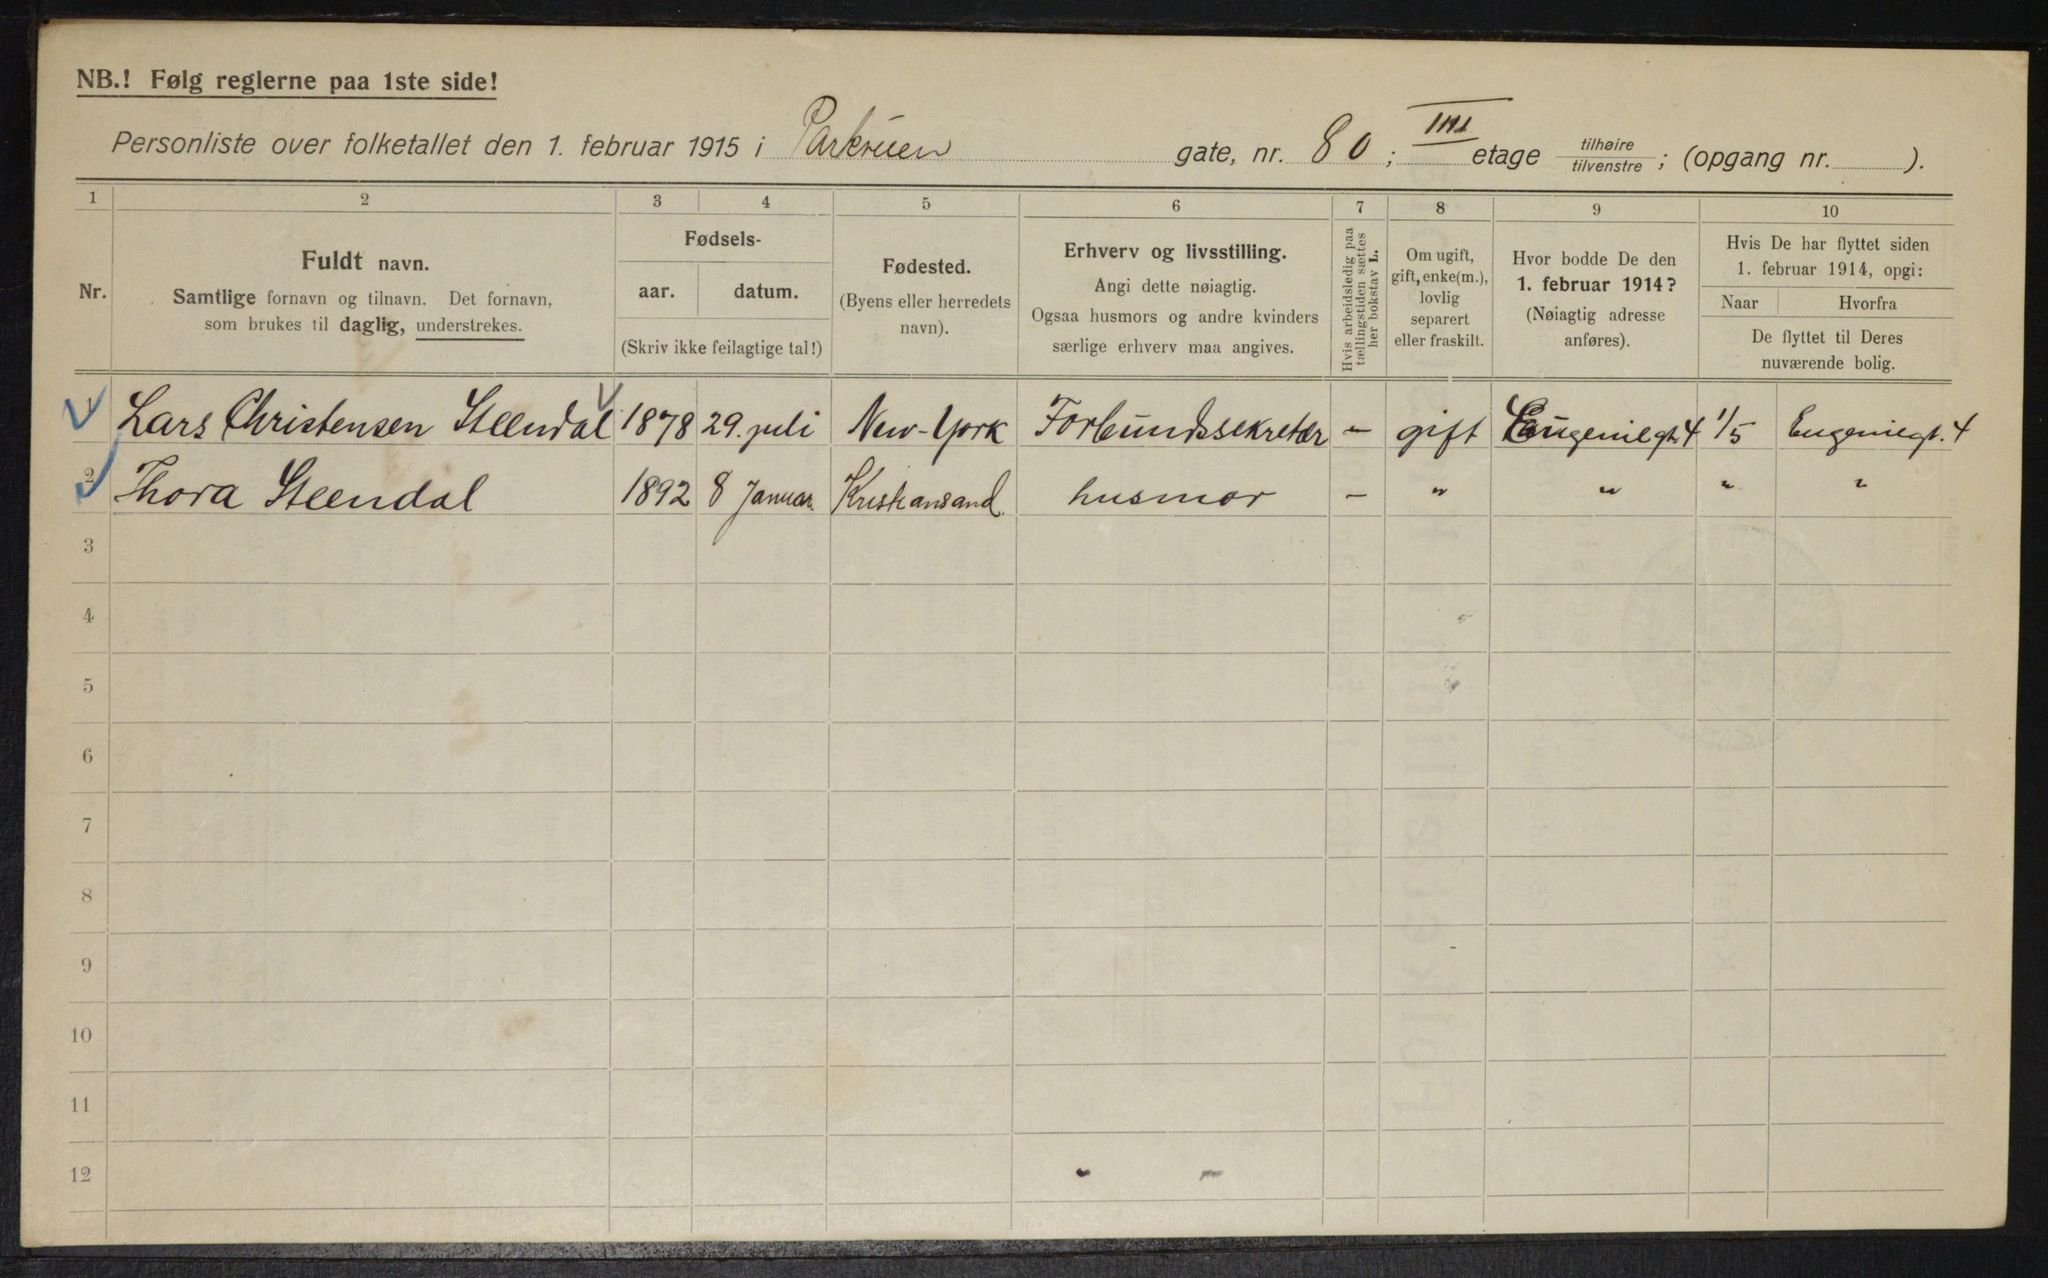 NB.! Følg reglerne paa 1ste side!
Personliste over folketallet den 1. februar 1915 i Parkveien gate, nr. 80; IIII etage tilhøire tilvenstre; (opgang nr. ).
1 2 3 4 5 6 7 8 9 10
Nr.
Fuldt navn.
Samtlige fornavn og tilnavn. Det fornavn,
som brukes til daglig, understrekes.
Fødsels-
aar. datum.
(Skriv ikke feilagtige tal!)
Fødested.
(Byens eller herredets
navn).
Erhverv og livsstilling.
Angi dette nøiagtig.
Ogsaa husmors og andre kvinders
særlige erhverv maa angives.
Hvis arbeidsledig paa
tællingstiden sættes
her bokstav L.
Om ugift,
gift, enke(m.),
lovlig
separert
eller fraskilt.
Hvor bodde De den
1. februar 1914?
(Nøiagtig adresse
anføres).
Hvis De har flyttet siden
1. februar 1914, opgi:
Naar Hvorfra
De flyttet til Deres
nuværende bolig.
1 Lars Christensen Steendal 1878 29. juli New-York Forbundssekretær – gift Eugeniegt. 4 1/5 Eugeniegt. 4
2 Thora Steendal 1892 8 Januar. Kristiansand. husmor – " " " "
3
4
5
6
7
8
9
10
11
12